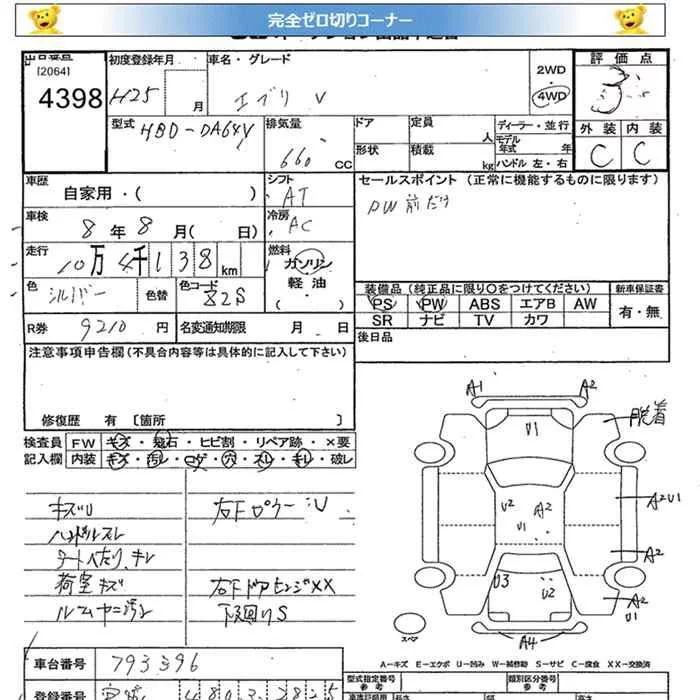 完全ゼロ切りコーナー
出品番号
[2064]
4398
初度登録年月
H25
月
車名・グレード
エブリ V
2WD
4WD
評価点
3
型式
HBD-DA64V
排気量
660
CC
ドア
定員
人
形状
積載
kg
ディーラー・並行
モデル年式
年
ハンドル 左・右
外装
内装
C
C
車歴
自家用・( )
シフト
AT
セールスポイント (正常に機能するものに限ります)
PW 前だけ
車検
8 年 8 月( 日)
冷房
AC
走行
10万 4千 1 3 8 km
燃料
ガソリン
軽油
( ・ )
色
シルバー
色替
色コード
Z2S
装備品 (純正品に限り〇をつけてください)
新車保証書
PS PW ABS エアB AW
SR ナビ TV カワ
有・無
R券
9210 円
名変通知期限
月 日
後日品
注意事項申告欄 (不具合内容等は具体的に記入して下さい)
修復歴 有 〔箇所 〕
検査員
記入欄
FW キズ・飛石・ヒビ割・リペア跡・×要
内装 キズ・汚レ・コゲ・穴・スレ・キレ・破レ
キズU
ハンドルスレ
シートへたり、キレ
荷室キズ
ルームヤニ汚れ
右下ドアヒンジXX
下廻りS
A1
A2
U1
脱着
U2
A2
U1
A2U1
A2
U3
U2
A2
U1
A4
スペア
A-キズ E-エクボ U-凹み W-補修跡 S-サビ C-腐食 XX-交換済
車台番号
793396
登録番号
型式指定番号
参考
類別区分番号
参考
長さ